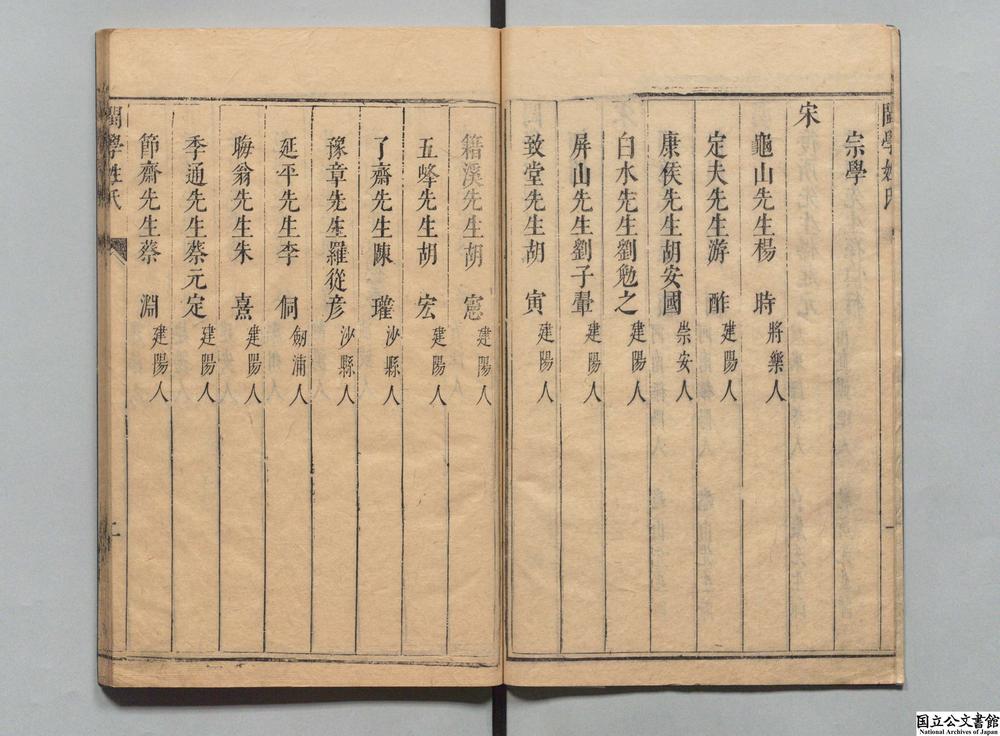 閩學姓氏
宗學
宋
龜山先生楊　時 將樂人
定夫先生游　酢 建陽人
康侯先生胡安國 崇安人
白水先生劉勉之 建陽人
屏山先生劉子翬 建陽人
致堂先生胡　寅 建陽人
籍溪先生胡　憲 建陽人
五峰先生胡　宏 建陽人
了齋先生陳　瓘 沙縣人
豫章先生羅從彥 沙縣人
延平先生李　侗 劒浦人
晦翁先生朱　熹 建陽人
季通先生蔡元定 建陽人
節齋先生蔡　淵 建陽人
閩學姓氏
二
国立公文書館
National Archives of Japan